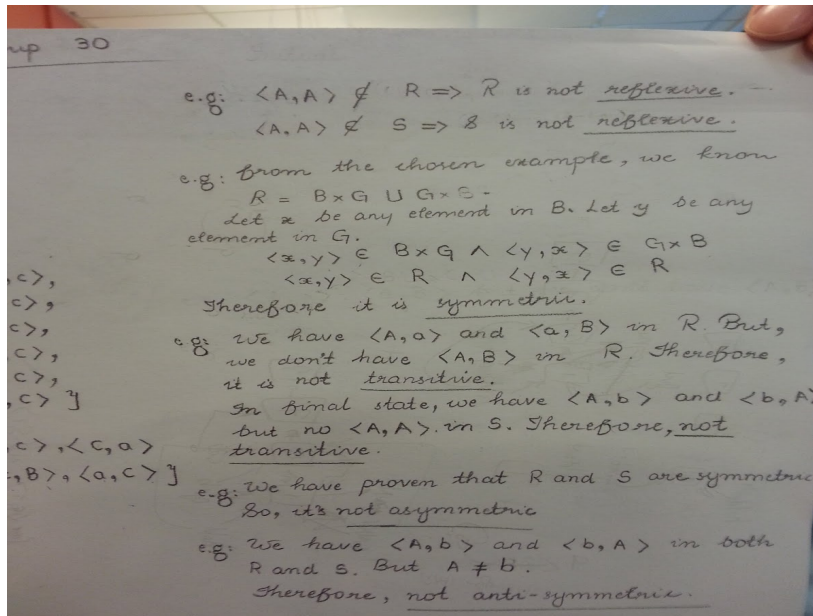 up 30
e.g: <A,A> ∉ R => R is not reflexive.
<A,A> ∉ S => S is not reflexive.
e.g: from the chosen example, we know
R = B×G ∪ G×B
Let x be any element in B. Let y be any
element in G.
<x,y> ∈ B×G ∧ <y,x> ∈ G×B
<x,y> ∈ R ∧ <y,x> ∈ R
Therefore it is symmetric.
e.g: We have <A,a> and <a,B> in R. But,
we don't have <A,B> in R. Therefore,
it is not transitive.
In final state, we have <A,b> and <b,A>
but no <A,A> in S. Therefore, not
transitive.
e.g: We have proven that R and S are symmetric
So, it's not asymmetric
e.g: We have <A,b> and <b,A> in both
R and S. But A ≠ b.
Therefore, not anti-symmetric.
c>,
c>,
c>,
c>,
c>,
,c> }
,c>, <c,a>
,B>, <a,c> }